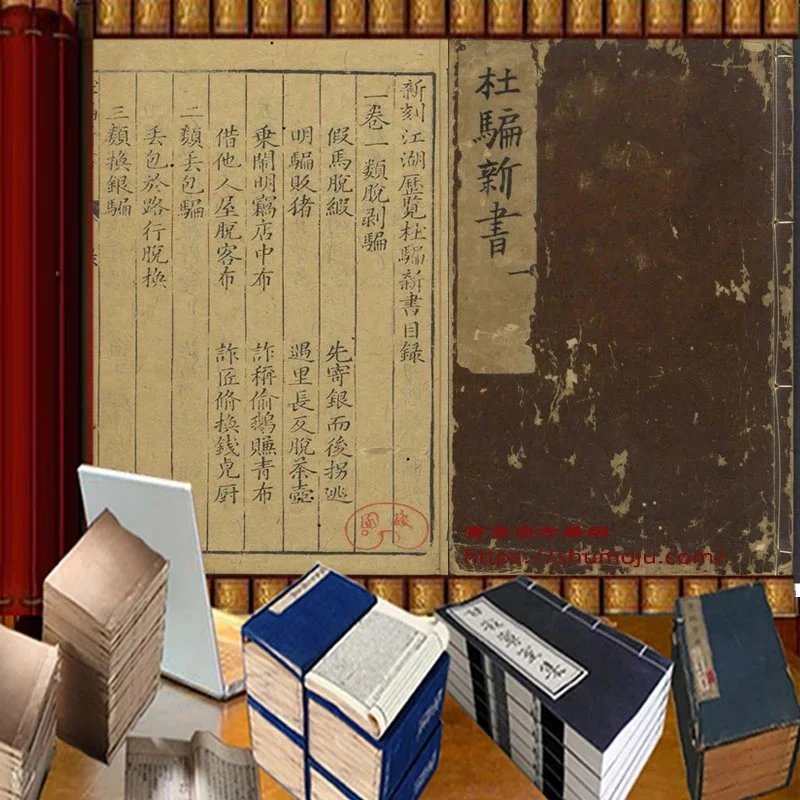 杜騙新書
一
新刻江湖歷覽杜騙新書目錄
一卷一類脫剥騙
假馬脫緞 先寄銀而後拐逃
明騙販猪 遇里長反脫茶壺
乘鬧明竊店中布 詐稱偷鵝賺青布
借他人屋脫客布 詐匠脩換錢卓厨
二類丢包騙
丢包於路行脫換
三類換銀騙
https://shumoju.com/